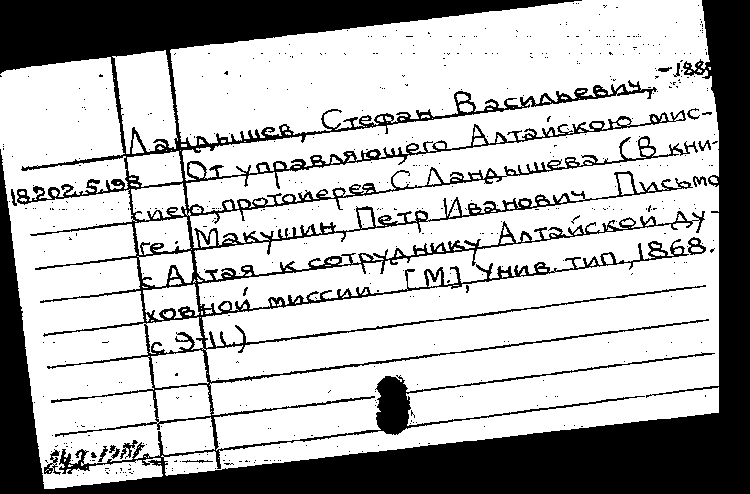 Ландышев, Стефан Васильевич, -188
От управляющего Алтайскою мис-
18.202.5.198
сиею, протоиерея С. Ландышева. (В кни-
ге: Макушин, Петр Иванович Письмо
с Алтая к сотруднику Алтайской ду-
ховной миссии. [М.], Унив. тип., 1868.
с. 9-11.)